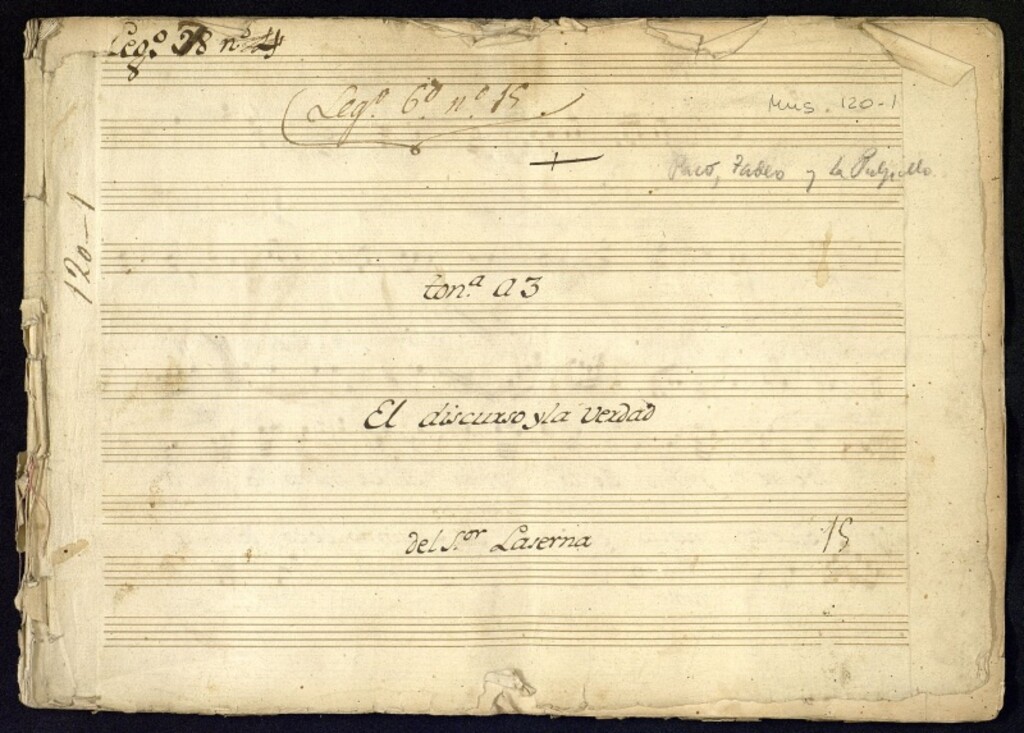 Leg.º 38 nº 4
8
Leg.º 6º n.º 15
Mus. 120-1
+
Paco, Tadeo y la Pulpillo
120-1
ton.ª a 3
El discurso y la verdad
del S.or Laserna
15